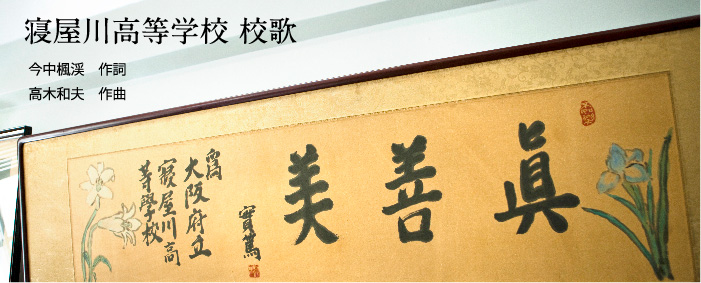 寝屋川高等学校 校歌
今中楓渓 作詞
高木和夫 作曲
眞善美
實篤
為
大阪府立
寝屋川高
等學校